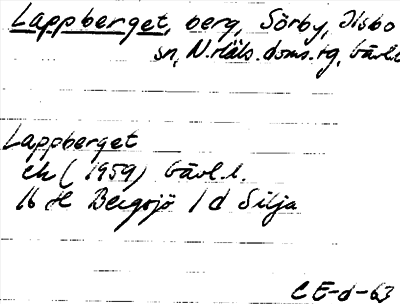 Lappberget, berg, Sörby, Ilsbo
sn, N.Häls.doms.tg, Gävl.l
Lappberget
ek (1959) Gävl.l.
16 H Bergsjö 1 d Silja
CE-d-63